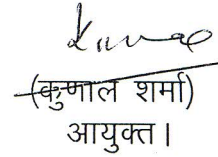 (कुणाल शर्मा)
आयुक्त।